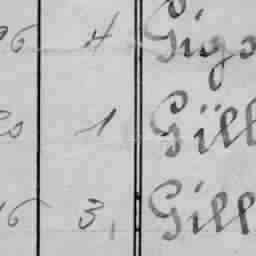 26 4 Gigo
20 1 Gill
16 3, Gill